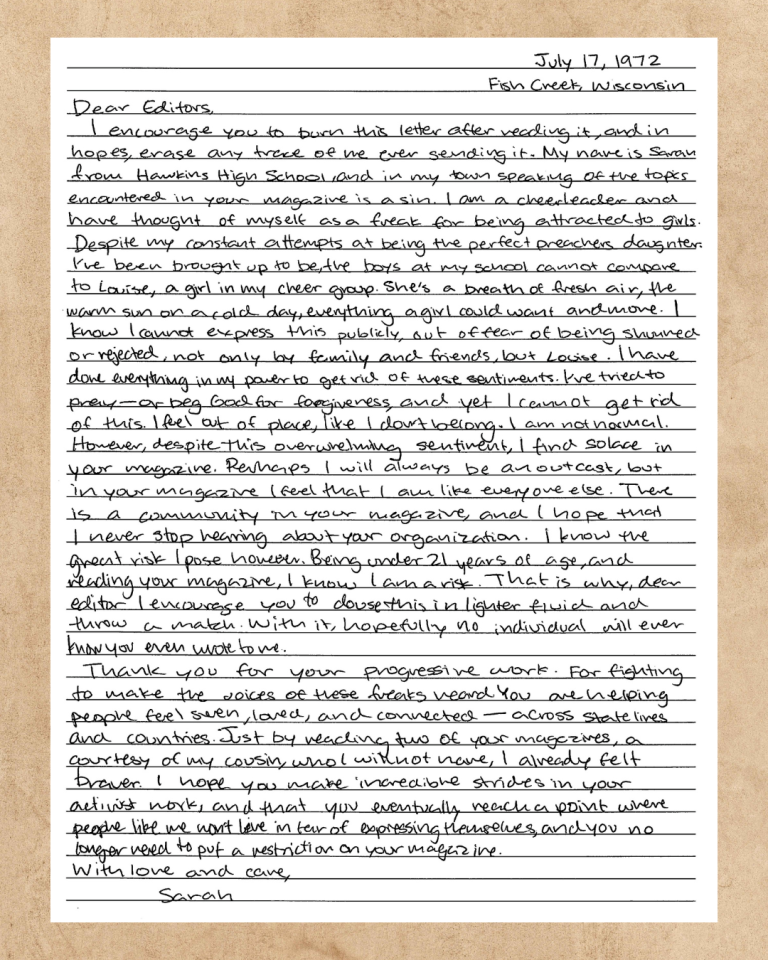 July 17, 1972
Fish Creek, Wisconsin
Dear Editors,
I encourage you to burn this letter after reading it, and in
hopes, erase any trace of me ever sending it. My name is Sarah
from Hawkins High School, and in my town speaking of the topics
encountered in your magazine is a sin. I am a cheerleader and
have thought of myself as a freak for being attracted to girls.
Despite my constant attempts at being the perfect preachers daughter
I've been brought up to be, the boys at my school cannot compare
to Louise, a girl in my cheer group. She's a breath of fresh air, the
warm sun on a cold day, everything a girl could want and more. I
know I cannot express this publicly, out of fear of being shunned
or rejected, not only by family and friends, but Louise. I have
done everything in my power to get rid of these sentiments. I've tried to
pray — or beg God for forgiveness, and yet I cannot get rid
of this. I feel out of place, like I don't belong. I am not normal.
However, despite this overwhelming sentiment, I find solace in
your magazine. Perhaps I will always be an outcast, but
in your magazine I feel that I am like everyone else. There
is a community in your magazine, and I hope that
I never stop hearing about your organization. I know the
great risk I pose however. Being under 21 years of age, and
reading your magazine, I know I am a risk. That is why, dear
editor I encourage you to douse this in lighter fluid and
throw a match. With it, hopefully no individual will ever
know you even wrote to me.
Thank you for your progressive work. For fighting
to make the voices of these freaks heard. You are helping
people feel seen, loved, and connected — across state lines
and countries. Just by reading two of your magazines, a
courtesy of my cousin, who I will not name, I already felt
braver. I hope you make incredible strides in your
activist work, and that you eventually reach a point where
people like me won't live in fear of expressing themselves, and you no
longer need to put a restriction on your magazine.
With love and care,
Sarah